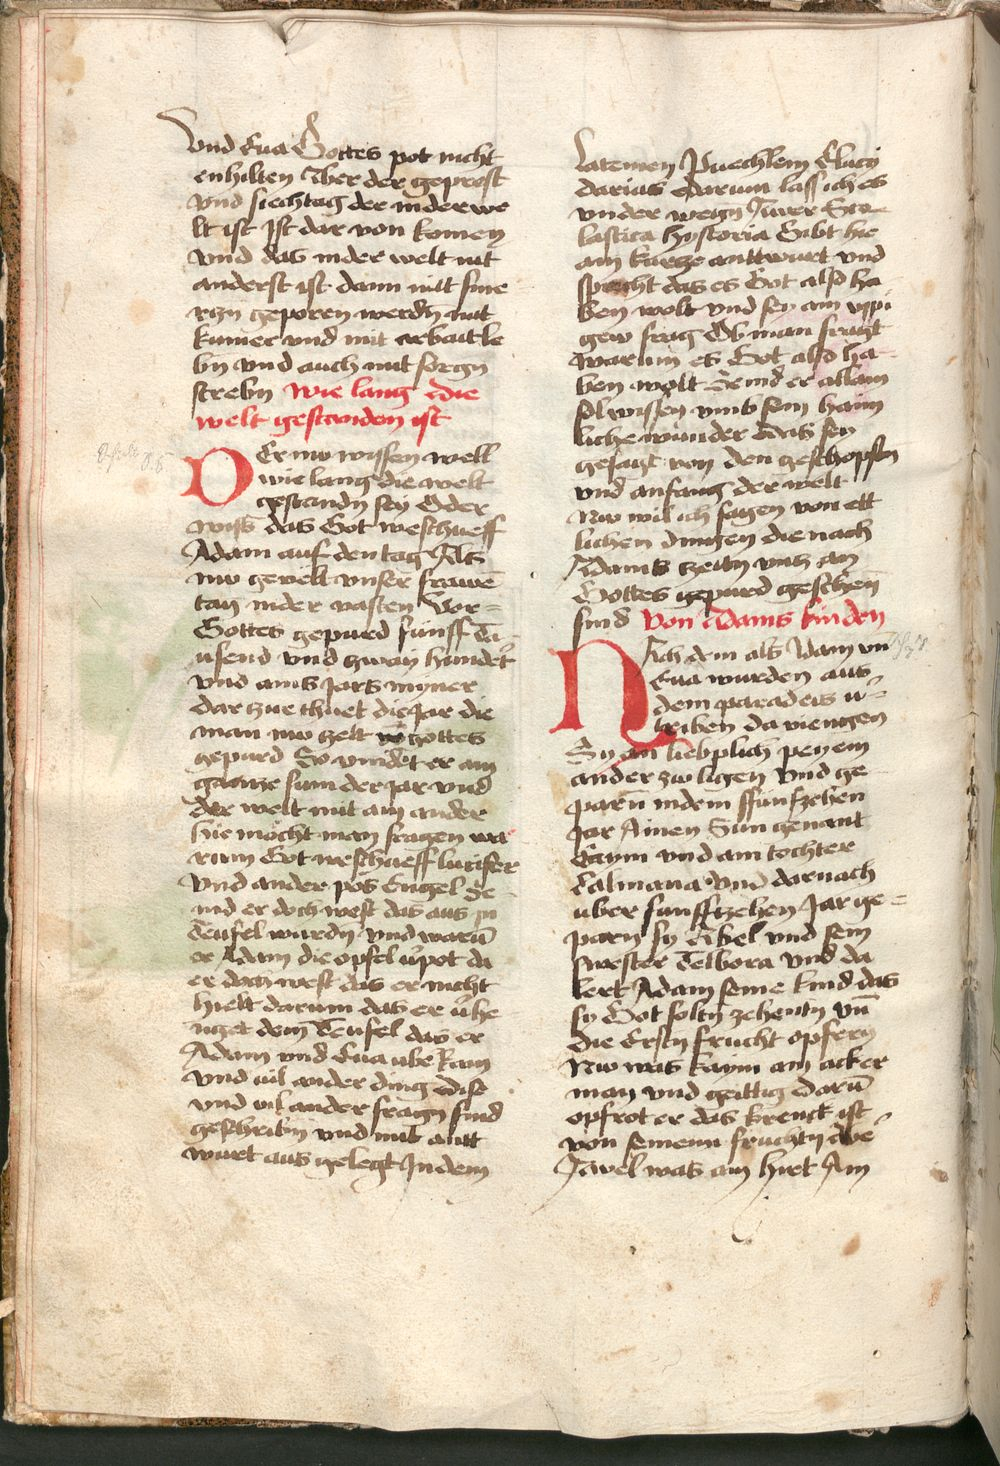 Vnd Eua Gottes pot nicht
enhilten Aber der geprest
vnd siechtag der inderwe
lt ist Ist dar von komen
vnd das inder welt nit
anderst ist dann mit sme
rczn geporen werdn mit
kumer vnd mit arbait le
bn vnd auch mit sorgn
strebn Wie lang die
welt gestanden ist
Der nw wissen well
wie lang die welt
gestandn sey Oder
wiss das Got weschueff
Adam auf den tag Als
nw gevelt vnser frawē
tag inder vasten Vor=
Gottes gepurd fünff ta
usend vnd zway hunder̄t
vnd ains Jars mynner
dar zue thuet die Jar die
man nw zelt von gottes
gepurd So vindet er am
gantze sum der Jar vnd
der welt mit am ander
hie mocht man fragen wa
rum Got weschueff lucifer
Vnd ander pös Engel Se
nid er doch west das aus in
Teufel wurdn vnd warū
er Adam die opfel v̄pot da
er doch west das er nicht
hielt darum das er v̄he
nget dem Teufel das er
Adam vnd Eua ube kam
vnd vil ander ding dise
vnd vil ander fragn sind
geschribn vnd mit antt
wurt aus gelegt In dem
lateinen Puechlein Eluci
darius darum lass ich es
vnder wegn Aver Sco
lastica hystoria Gibt hie
ain kurcze anttwurt vnd
spricht das es Got also ha
ben wolt vnd sey ain vppi
gew frag Ob man fragt
warum es Got also ha-
ben wolt Seind er allain
sol wissen vmb sein haim
liche wunder Das sey
gesagt von den geschopfn
vnd anfang der welt
Nw wil ich sagen von ett
lichen dingen die nach
Adams zeitn vntz an
Gottes gepurd geschen
sind Von Adams kinden
Nach dem als Adam vn
Eua wurden aus
dem paradeis v̄=
triben da viengen
Sy an lieplich pey ein
ander zw ligen Vnd ge
parn indem ffunfzehen
Jar Ainen Sun genant
Caym vnd ain tochter
Calmana Vnd darnach
uber funffzehen Jar ge=
parn sy Abel vnd sein
swester Delbora Vnd da
lert Adam seine kind das
sy Got soltn zehentn vn̄
die Erstn frucht opfern
Nw was kaym ain acker
man vnd geittig darū
opfrot er das krenck ist
von seinenn fruchtn die
Awel was ain hirt Am